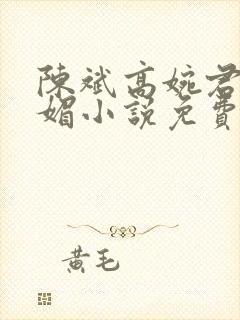 陳斌高婉君
媚小說免費
黃毛